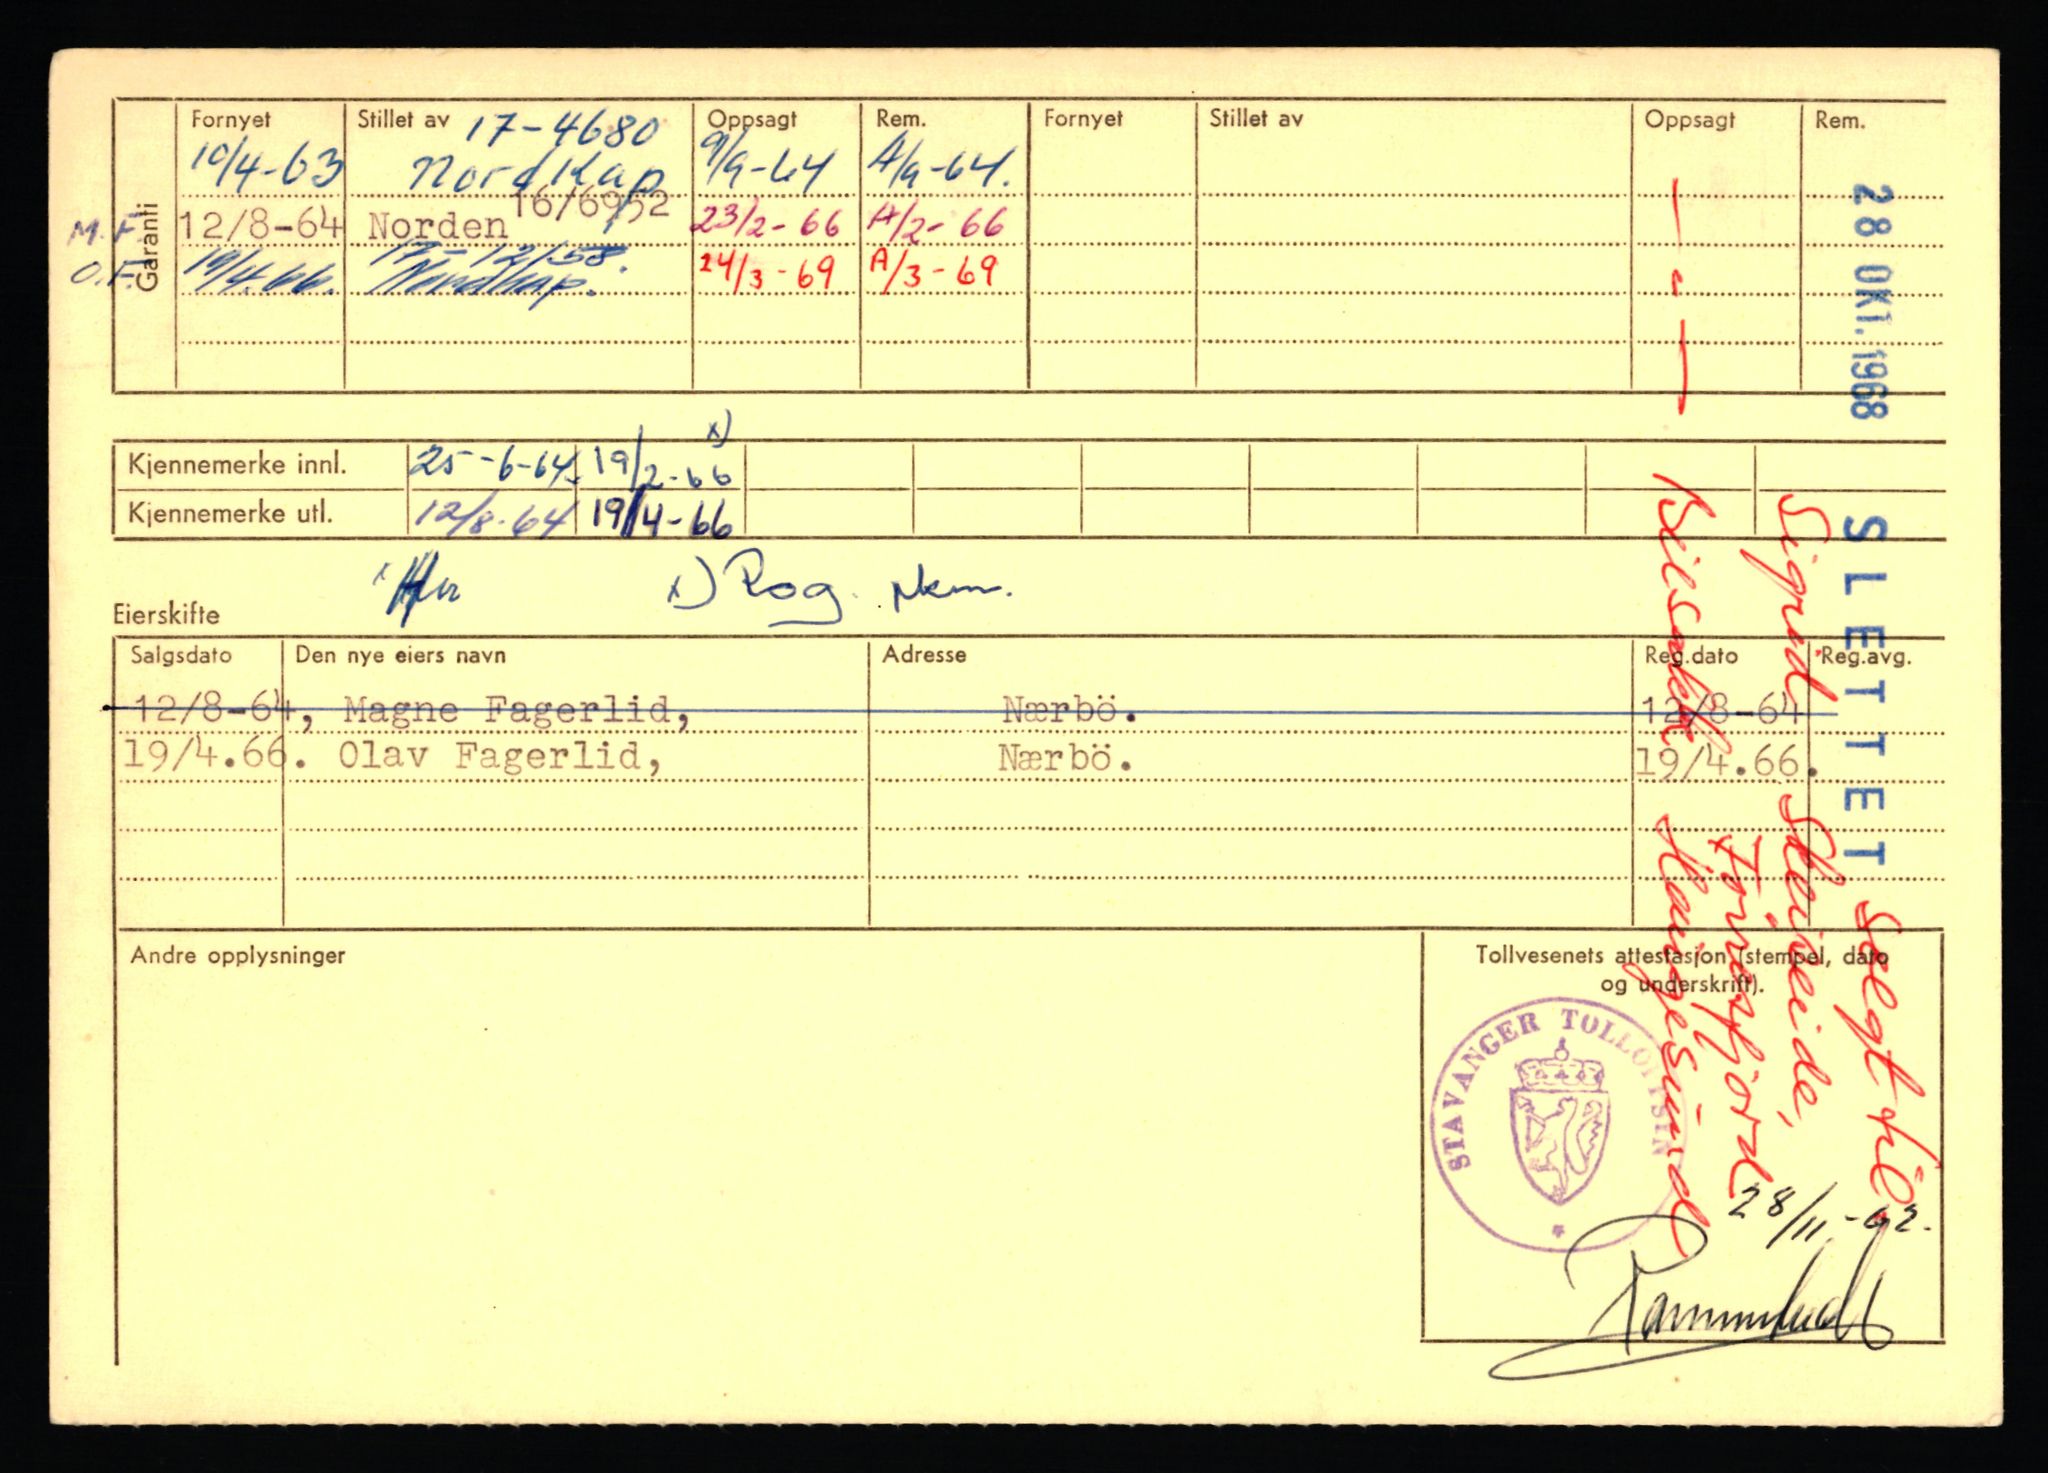 Garanti
Fornyet Stillet av Oppsagt Rem. Fornyet Stillet av Oppsagt Rem.
17-4680
10/4-63 Nordkap 9/9-64 A/9-64.
16/6952
M.F. 12/8-64 Norden 23/2-66 A/2-66
17-12158.
O.F. 19/4.66. Nordkap. 24/3-69 A/3-69
x)
Kjennemerke innl. 25-6-64. 19/2-66
Kjennemerke utl. 12/8-64 19/4-66
x) Rog. Nkm.
Eierskifte
Salgsdato Den nye eiers navn Adresse Reg.dato Reg.avg.
12/8-64, Magne Fagerlid, Nærbö. 12/8-64
19/4.66. Olav Fagerlid, Nærbö. 19/4.66.
Andre opplysninger
Tollvesenets attestasjon (stempel, dato
og underskrift).
STAVANGER TOLLDISTR
28/11-62.
28 OKT. 1968
SLETTET
Selgt til
Sigrid